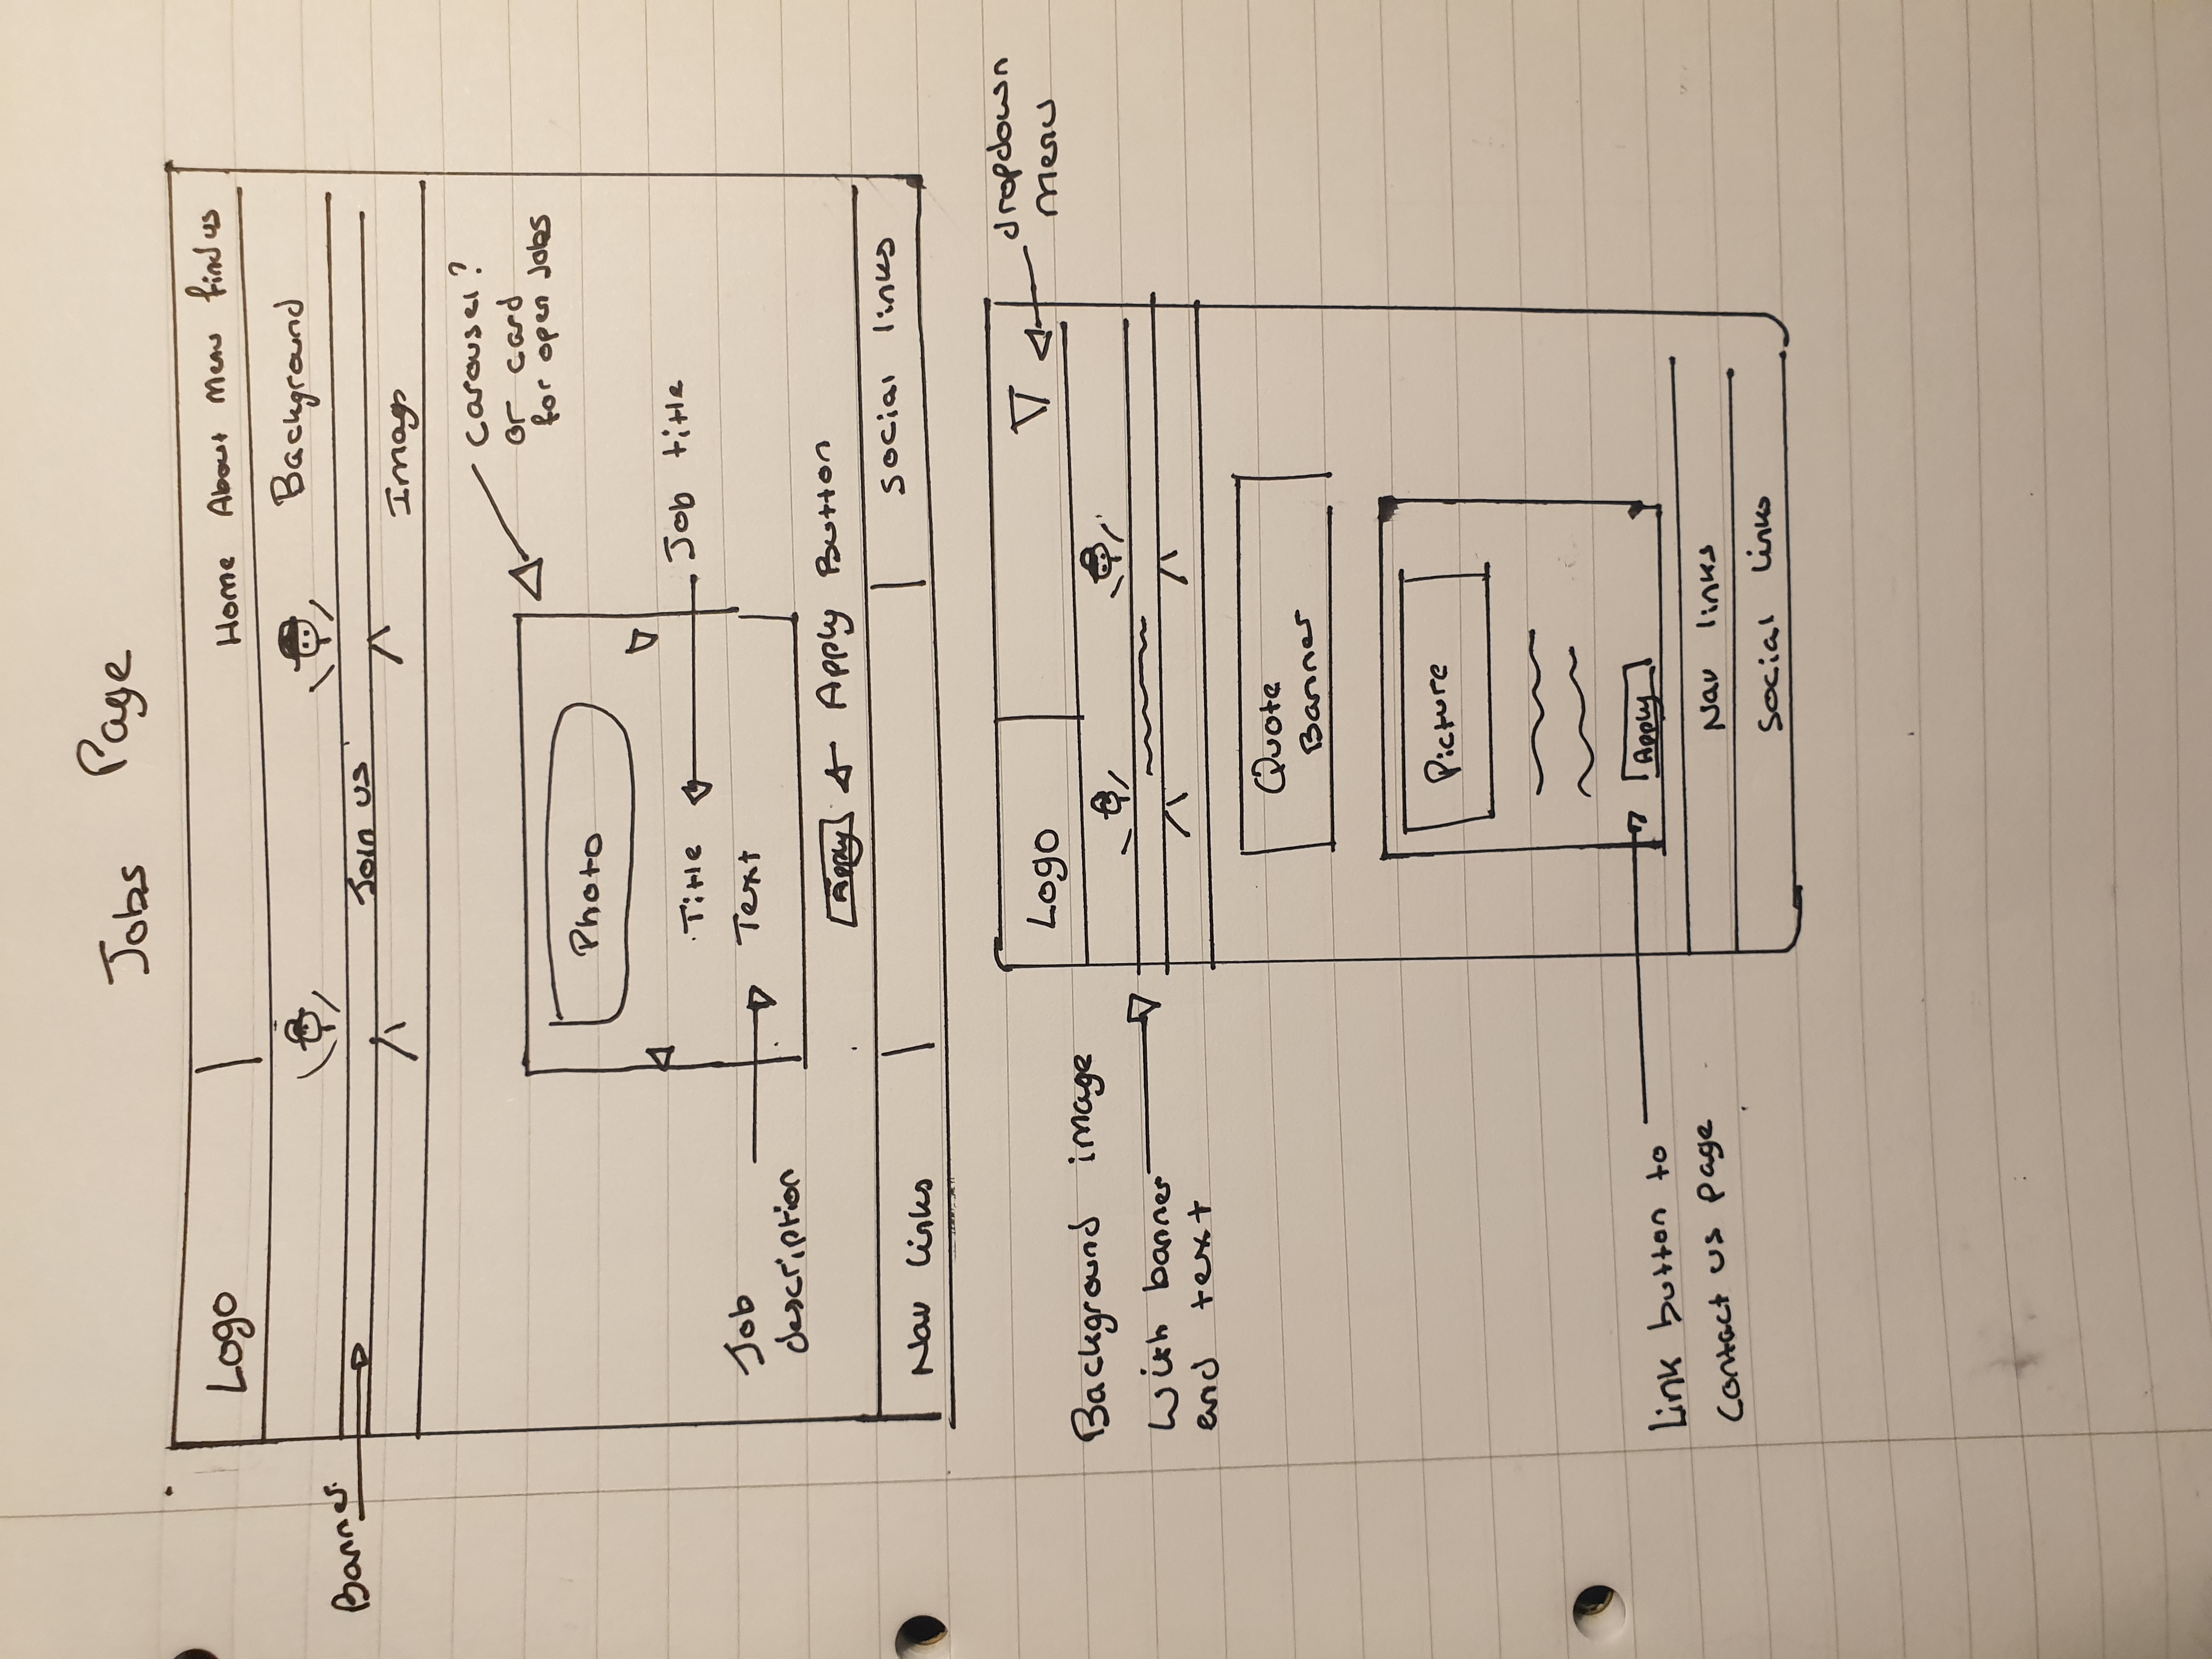 Jobs Page
Logo
Home About Menu find us
Background
Banner
Join us
Image
Carousel?
or card
for open Jobs
Photo
Title
Job title
Job
description
Text
Apply
Apply Button
Nav links
Social links
Logo
dropdown
menu
Background image
With banner
and text
Quote
Banner
Picture
Apply
Link button to
contact us page
Nav links
Social links